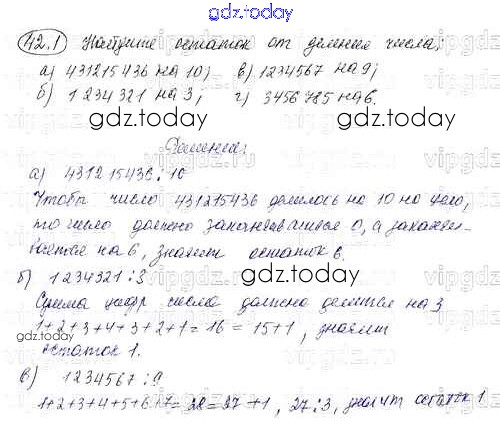 gdz.today
42.1 Найдите остаток от деления числа:
а) 431215436 на 10; в) 1234567 на 9;
б) 1234321 на 3; г) 3456785 на 6.
gdz.today gdz.today
Решение
а) 431215436 : 10
Чтобы число 431215436 делилось на 10 на цело,
то число должно заканчиваться 0, а заканчи-
вается на 6, значит остаток 6.
gdz.today
б) 1234321 : 3
Сумма цифр числа должна делится на 3
1+2+3+4+3+2+1=16=15+1, значит
gdz.today
остаток 1.
в) 1234567 : 9
gdz.today
1+2+3+4+5+6+7=28=27+1, 27:3, значит остаток 1